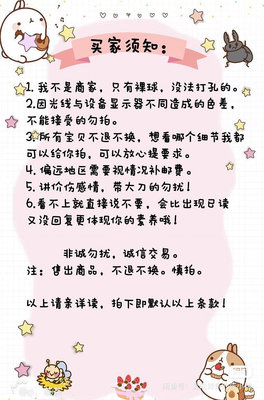 买家须知：
1. 我不是商家，只有裸球，没法打孔的。
2.因光线与设备显示器不同造成的色差，
不能接受的勿拍。
3.所有宝贝不退不换，想看哪个细节我都
可以给你拍，可以放心提要求。
4. 偏远地区需要视情况补邮费。
5. 讲价伤感情，带大刀的勿扰！
6.看不上就直接说不要，会比出现已读
又没回复更体现你的素养哦！
非诚勿扰，诚信交易。
注：售出商品，不退不换。慎拍。
以上请亲详读，拍下即默认以上条款！